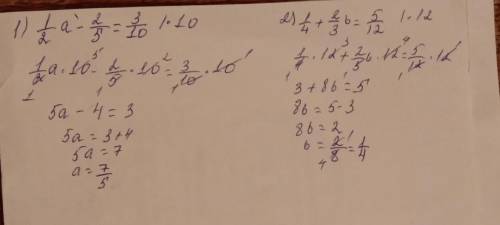 1) 1/2 a - 2/5 = 3/10 | · 10
1/2 a · 10 - 2/5 · 10 = 3/10 · 10
5a - 4 = 3
5a = 3 + 4
5a = 7
a = 7/5
2) 1/4 + 2/3 b = 5/12 | · 12
1/4 · 12 + 2/3 b · 12 = 5/12 · 12
3 + 8b = 5
8b = 5 - 3
8b = 2
b = 2/8 = 1/4